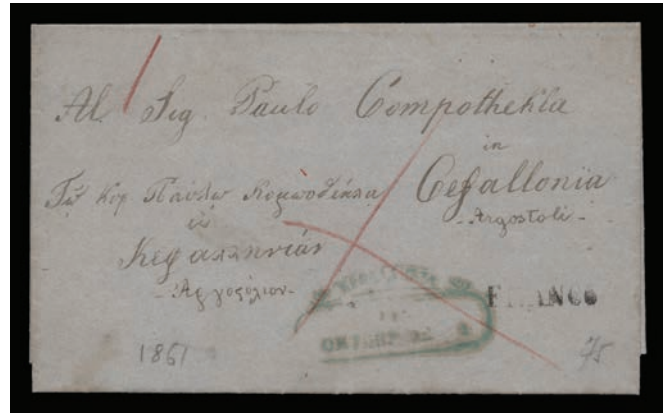 Al Sig. Paulo Compothekla
in
Cefallonia
- Argostoli -
Τῷ Κύρ Παύλῳ Κομποθέκλα
εἰς
Κεφαλληνίαν
- Ἀργοστόλιον -
FRANCO
1861